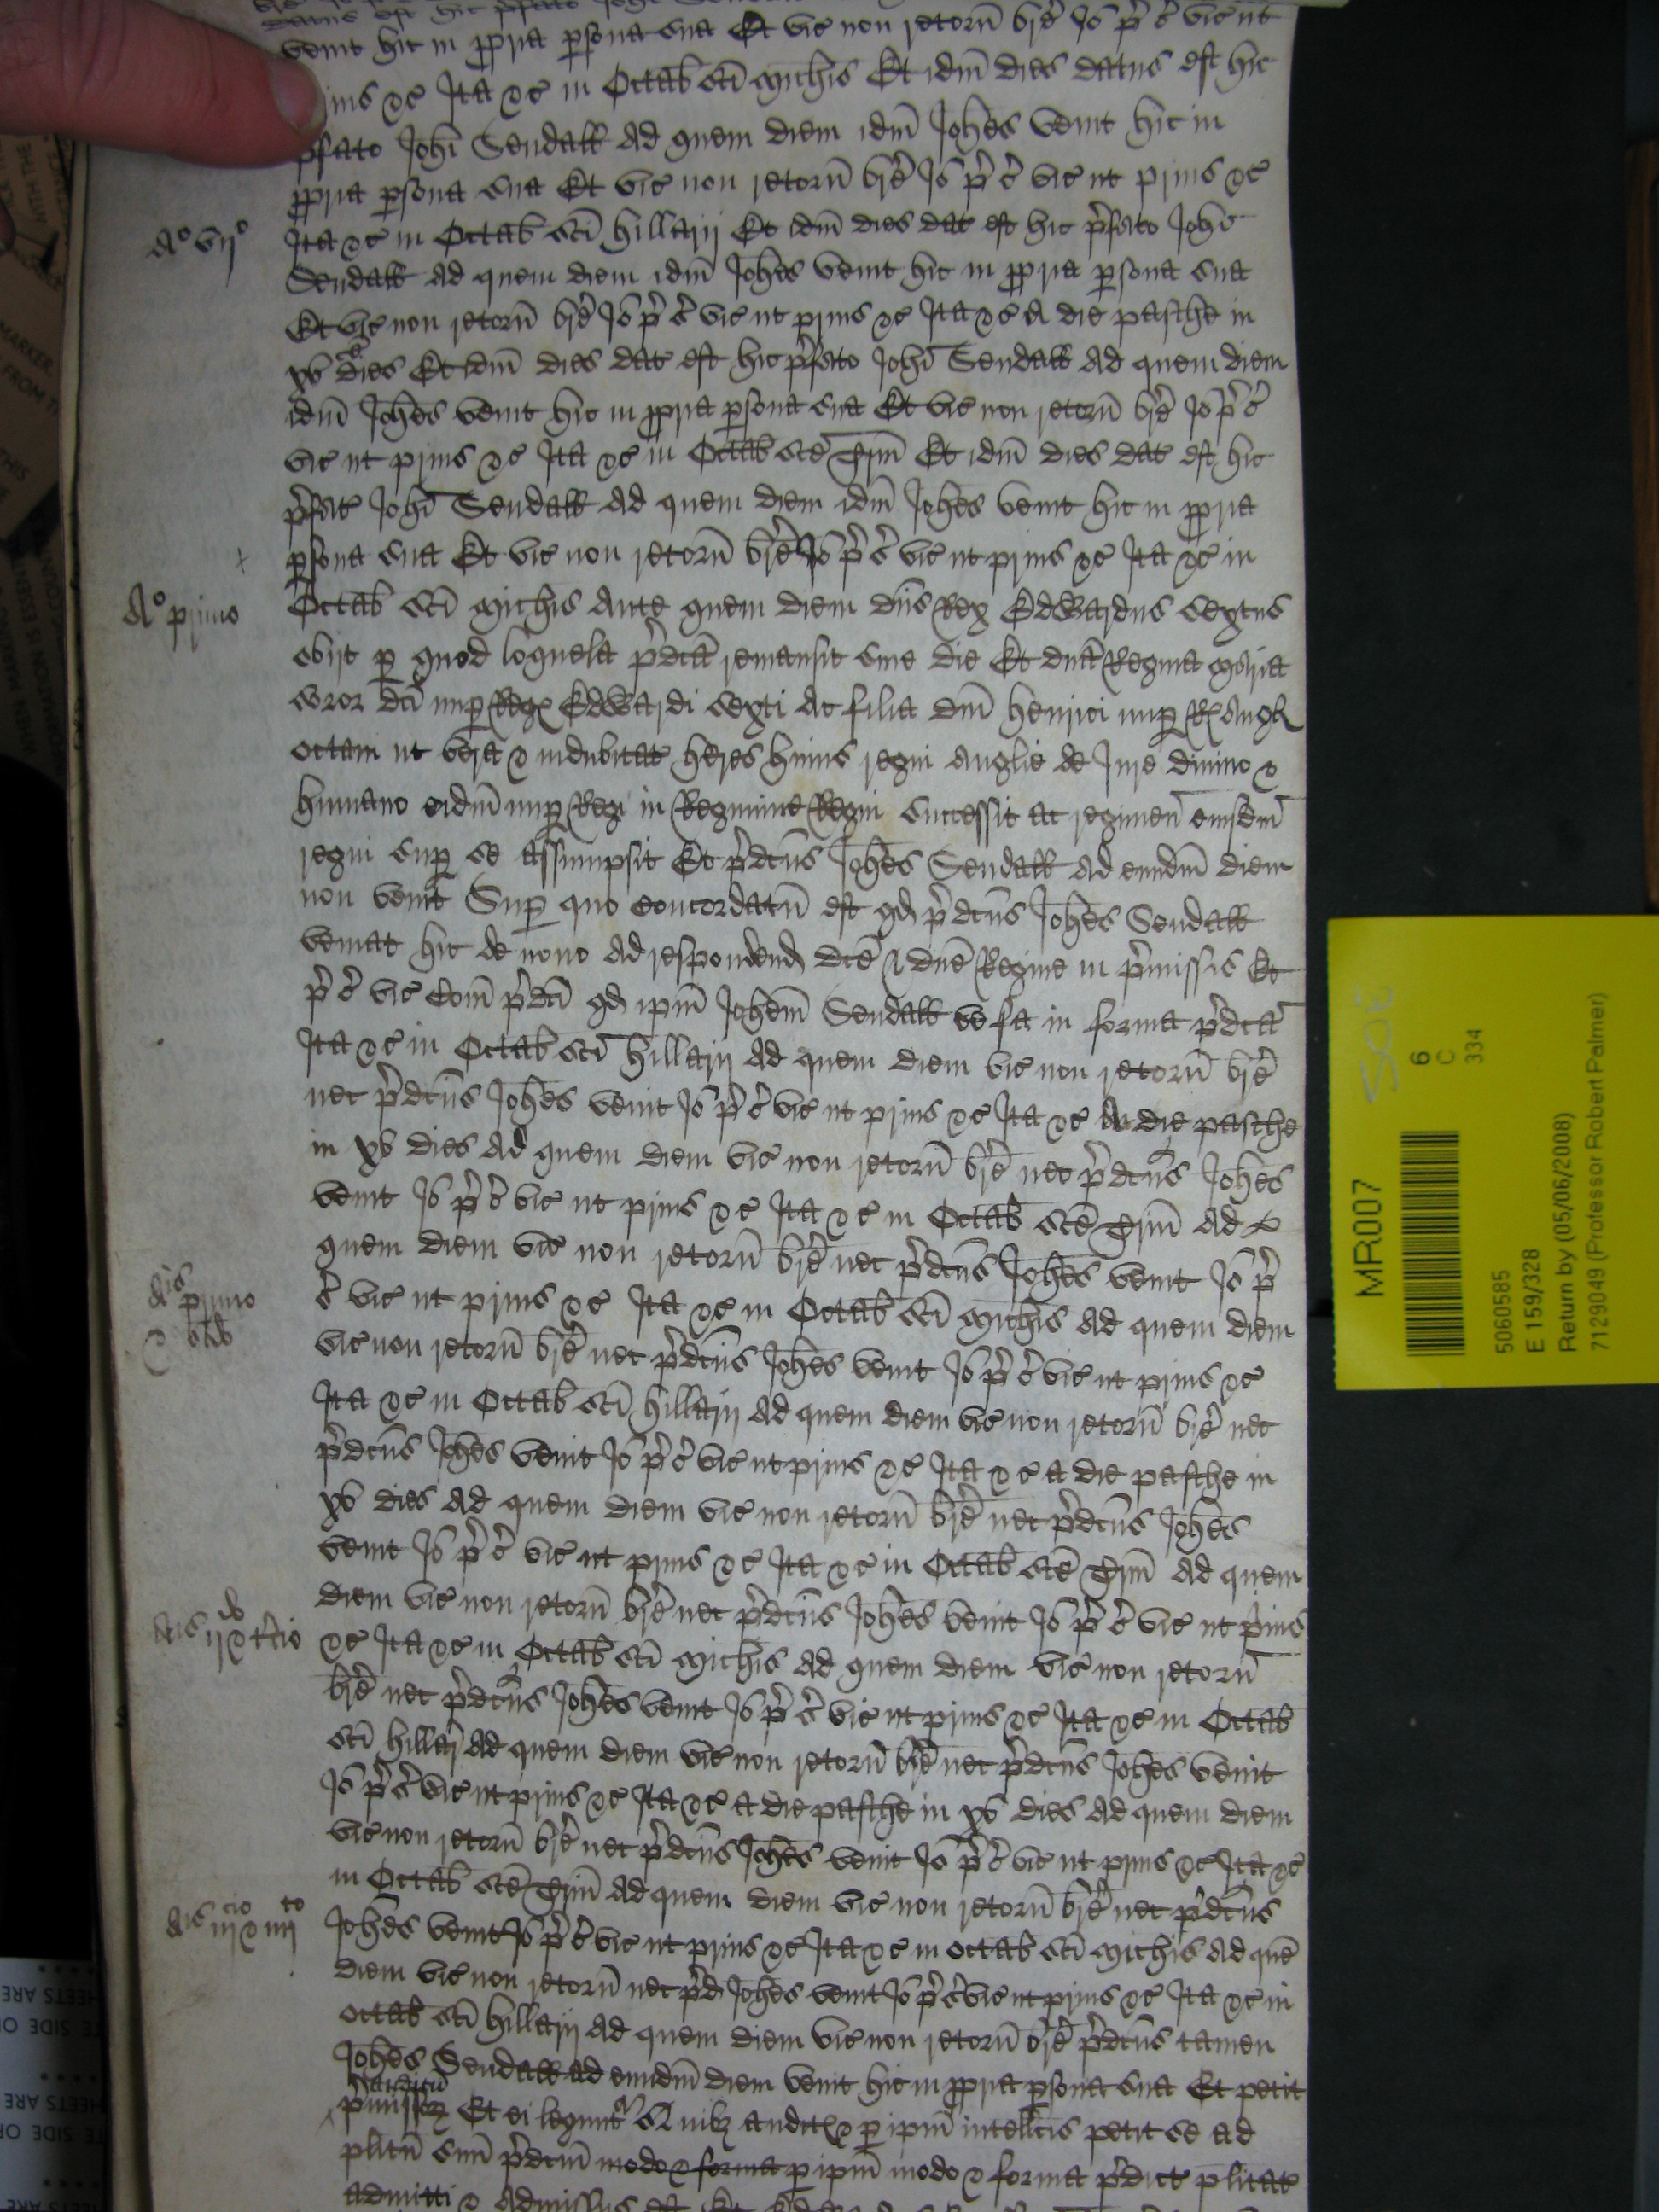 venit hic in ppria psona sua Et vic non retorn bre Io p c vic ut
prius &c Ita &c in Octab sci Michis Et idm dies datus est hic
pfato Johi Sendall Ad quem diem idm Johes venit hic in
ppria psona sua Et vic non retorn bre Io p c vic ut prius &c
Ao vijo
Ita &c in Octab sci Hillarij Et idm dies dat est hic pfato Johi
Sendall Ad quem diem idm Johes venit hic in ppria psona sua
Et vic non retorn bre Io p c vic ut prius &c Ita &c A die pasche in
xv dies Et idm dies dat est hic pfato Johi Sendall Ad quem diem
idm Johes venit hic in ppria psona sua Et vic non retorn bre Io p c
vic ut prius &c Ita &c in Octab sce Trin Et idm dies dat est hic
pfat Johi Sendall Ad quem diem idm Johes venit hic in ppria
psona sua Et vic non retorn bre Io p c vic ut prius &c Ita &c in
Ao primo
Octab sci Michis Ante quem diem dns Rex Edwardus sextus
obijt p quod loquela pdca remansit sine die Et dna Regina Maria
soror dci nup Reg Edwardi sexti Ac filia dni Henrici nup R Angl
octavi ut vera & indubitat heres huius regni Anglie de Jure divino &
humano eidm nup Regi in Regimine Regni successit ac regimen eiusdm
regni sup se assumpsit Et pdcus Johes Sendall ad eundm diem
non venit Sup quo concordatu est qd pdcus Johes Sendall
veniat hic de novo Ad respondend dce dne Regine in pmissis Et
p c vic Com pdci qd ipm Johem Sendall ve fa in forma pdca
Ita &c in Octab sci Hillarij Ad quem diem vic non retorn bre
nec pdcus Johes venit Io p c vic ut prius &c Ita &c A die pasche
in xv dies Ad quem diem vic non retorn bre nec pdcus Johes
venit Io p c vic ut prius &c Ita &c in Octab sce Trin Ad
quem diem vic non retorn bre nec pdcus Johes venit Io p
Ais primo & scdo
c vic ut prius &c Ita &c in Octab sci Michis Ad quem diem
vic non retorn bre nec pdcus Johes venit Io p c vic ut prius &c
Ita &c in Octab sci Hillarij Ad quem diem vic non retorn bre nec
pdcus Johes venit Io p c vic ut prius &c Ita &c a die pasche in
xv dies Ad quem diem vic non retorn bre nec pdcus Johes
venit Io p c vic ut prius &c Ita &c in Octab sce Trin Ad quem
diem vic non retorn bre nec pdcus Johes venit Io p c vic ut prius
Ais ijdo & tcio
&c Ita &c in Octab sci Michis Ad quem diem vic non retorn
bre nec pdcus Johes venit Io p c vic ut prius &c Ita &c in Octab
sci Hillarij Ad quem diem vic non retorn bre nec pdcus Johes venit
Io p c vic ut prius &c Ita &c a die pasche in xv dies Ad quem diem
vic non retorn bre nec pdcus Johes venit Io p c vic ut prius &c Ita &c
in Octab sce Trin Ad quem diem vic non retorn bre nec pdcus
Ais iijcio & iiijto
Johes venit Io p c vic ut prius &c Ita &c in octab sci Michis Ad que
diem vic non retorn nec pd Johes venit Io p c vic ut prius &c Ita &c in
octab sci Hillarij Ad quem diem vic non retorn bre pdcus tamen
Johes Sendall ad eundm diem venit hic in ppria psona sua Et petit
auditu
pmissor Et ei leguntr Quibz audit & p ipm intellcis petit se ad
plitu suu pdcum modo & forma p ipm modo & forma pdict plitat
admitti & Admissus est
MR007
6
C
334
5060585
E 159/328
Return by (05/06/2008)
7129049 (Professor Robert Palmer)